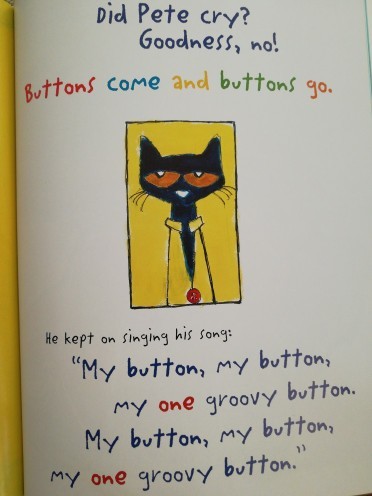 Did Pete cry?
Goodness, no!
Buttons come and buttons go.
He kept on singing his song:
"My button, my button,
my one groovy button.
My button, my button,
my one groovy button."